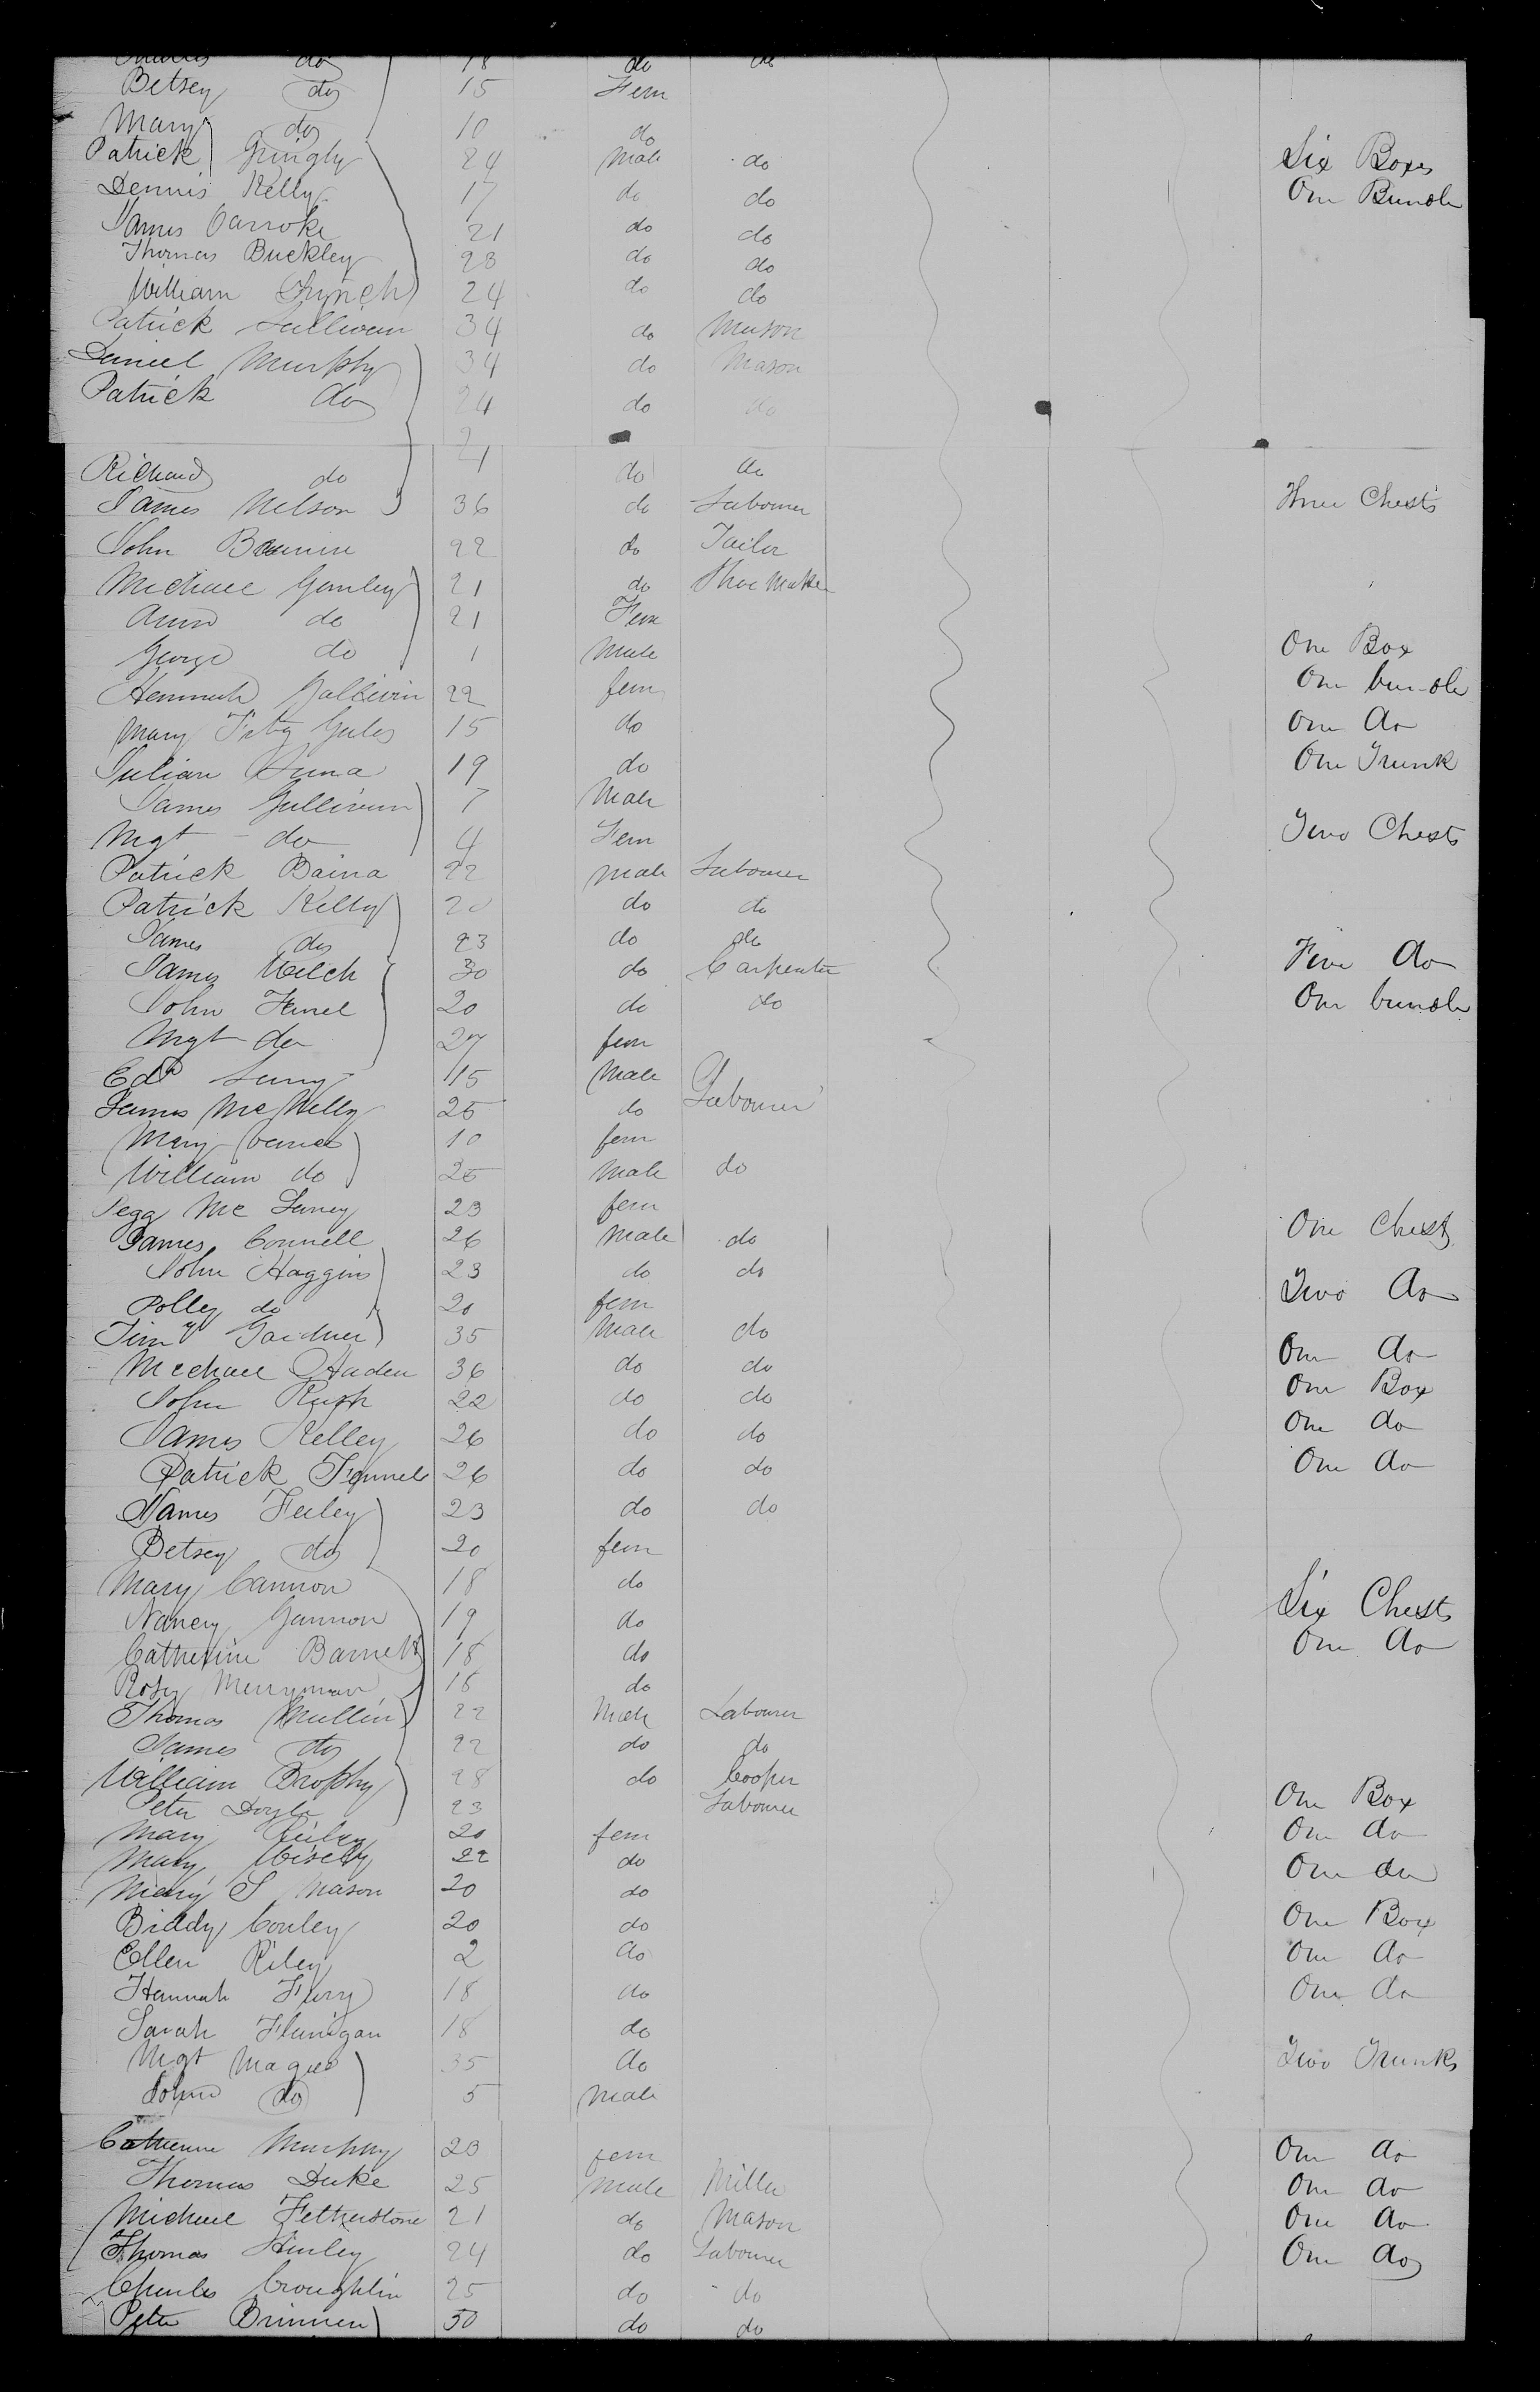 do 18 do do
Betsey do 15 Fem
Mary do 10 do
Patrick Gringly 24 Male do Six Boxes
Dennis Kelly 17 do do One Bundle
James 21 do do
Thomas Buckley 23 do do
William Lynch 24 do do
Patrick Sullivan 34 do Mason
Daniel Murphy 34 do Mason
Patrick do 24 do do
Richard do 21 do do
James Nelson 36 do Labourer Three Chests
John 22 do Tailor
Michael Ganley 21 do Shoe Maker
Ann do 21 Fem
George do 1 Male One Box
Hannah 22 fem One bundle
Mary Fitz 15 do One do
Julian 19 do One Trunk
James Gullivan 7 Male
Mgt do 4 Fem Two Chests
Patrick Baina 22 Male Labourer
Patrick Kelly 20 do do
James do 23 do do Five do
James Welch 30 do Carpenter
John 20 do do One bundle
Mgt do 27 fem
Edd 15 Male
James McNelly 25 do Labourer
Mary 10 fem
William do 25 Male do
Pegg Mc 23 fem
James Connell 26 Male do One Chest
John Haggins 23 do do
Polley do 20 fem Two do
Timy Gardner 35 Male do
Michael OHaden 36 do do One do
John Rush 22 do do One Box
James Kelley 26 do do One do
Patrick Fennel 26 do do One do
James Feeley 23 do do
Betsey do 20 fem
Mary Cannon 18 do
Nancy Gannon 19 do Six Chests
Catherine Barnett 18 do One do
Rosey Merryman 18 do
Thomas Mullin 22 Male Labourer
James do 22 do do
William Brophy 28 do Cooper
Peter Doyle 23 Labourer One Box
Mary 20 fem One do
Mary 22 do One do
Mary S Mason 20 do
Biddy Conley 20 do One Box
Ellen Riley 2 do One do
Hannah Furry 18 do One do
Sarah Flanigan 18 do
Mgt Magee 35 do Two Trunks
John do 5 Male
Catherine Murphy 23 fem One do
Thomas Duke 25 Male Miller One do
Michael Fetherstone 21 do Mason One do
Thomas Hinley 24 do Labourer One do
Charles Croughlin 25 do do
Peter Brinnen 50 do do